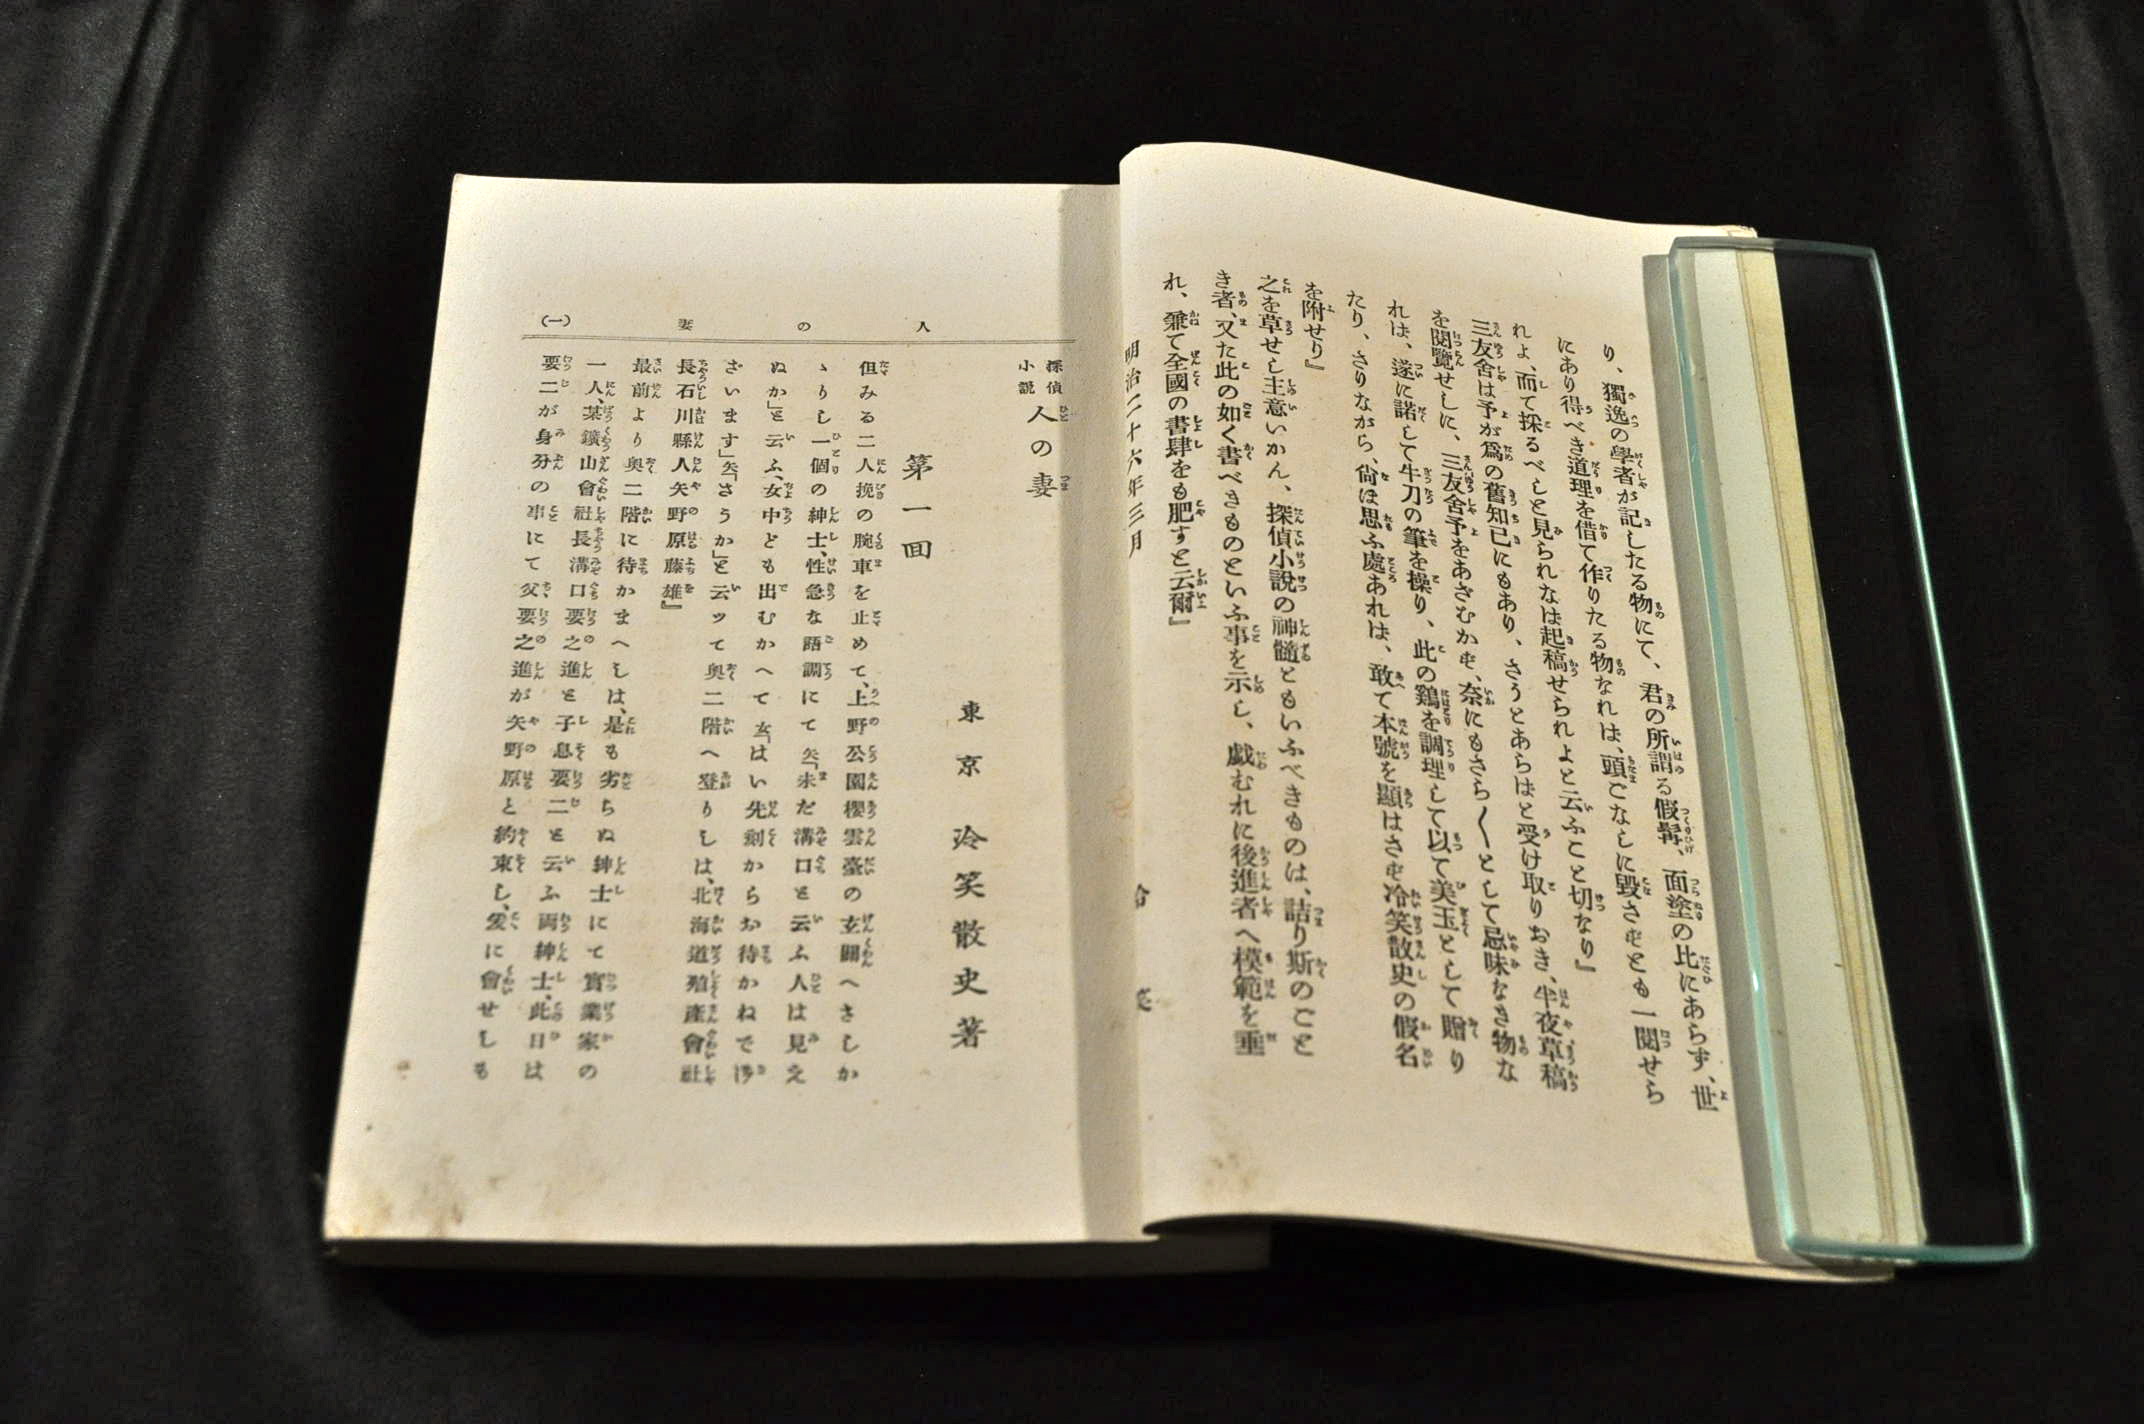 り、獨逸の學者が記したる物にて、君の所謂る假髯、面塗の比にあらず、世
にあり得べき道理を借て作りたる物なれは、頭ごなしに毀さずとも一閲せら
れよ、而て採るべしと見られなは起稿せられよと云ふこと切なり』
三友舍は予が爲の舊知已にもあり、さうとあらはと受け取りおき、半夜草稿
を閲覽せしに、三友舍予をあざむかず、奈にもさら〱として忌味なき物な
れは、遂に諾して牛刀の筆を操り、此の鷄を調理して以て美玉として贈り
たり、さりながら、尙ほ思ふ處あれは、敢て本號を顯はさず冷笑散史の假名
を附せり』
之を草せし主意いかん、探偵小說の神髓ともいふべきものは、詰り斯のごと
き者、又た此の如く書べきものといふ事を示し、戯むれに後進者へ模範を垂
れ、兼て全國の書肆をも肥すと云爾』
明治二十六年三月
人の妻
(一)
探偵小說 人の妻
東京 冷笑散史著
第一回
但みる二人挽の腕車を止めて、上野公園櫻雲臺の玄關へさしか
ゝりし一個の紳士、性急な語調にて矢「未だ溝口と云ふ人は見え
ぬか」と云ふ、女中ども出むかへて玄「はい先刻からお待かねで御
ざいます」矢「さうか」と云ッて奧二階へ登りしは、北海道殖產會社
長石川縣人矢野原藤雄』
最前より奧二階に待かまへしは、是も劣らぬ紳士にて實業家の
一人、某鑛山會社長溝口要之進と子息要二と云ふ両紳士、此日は
要二が身分の事にて父要之進が矢野原と約束し、爰に會せしも